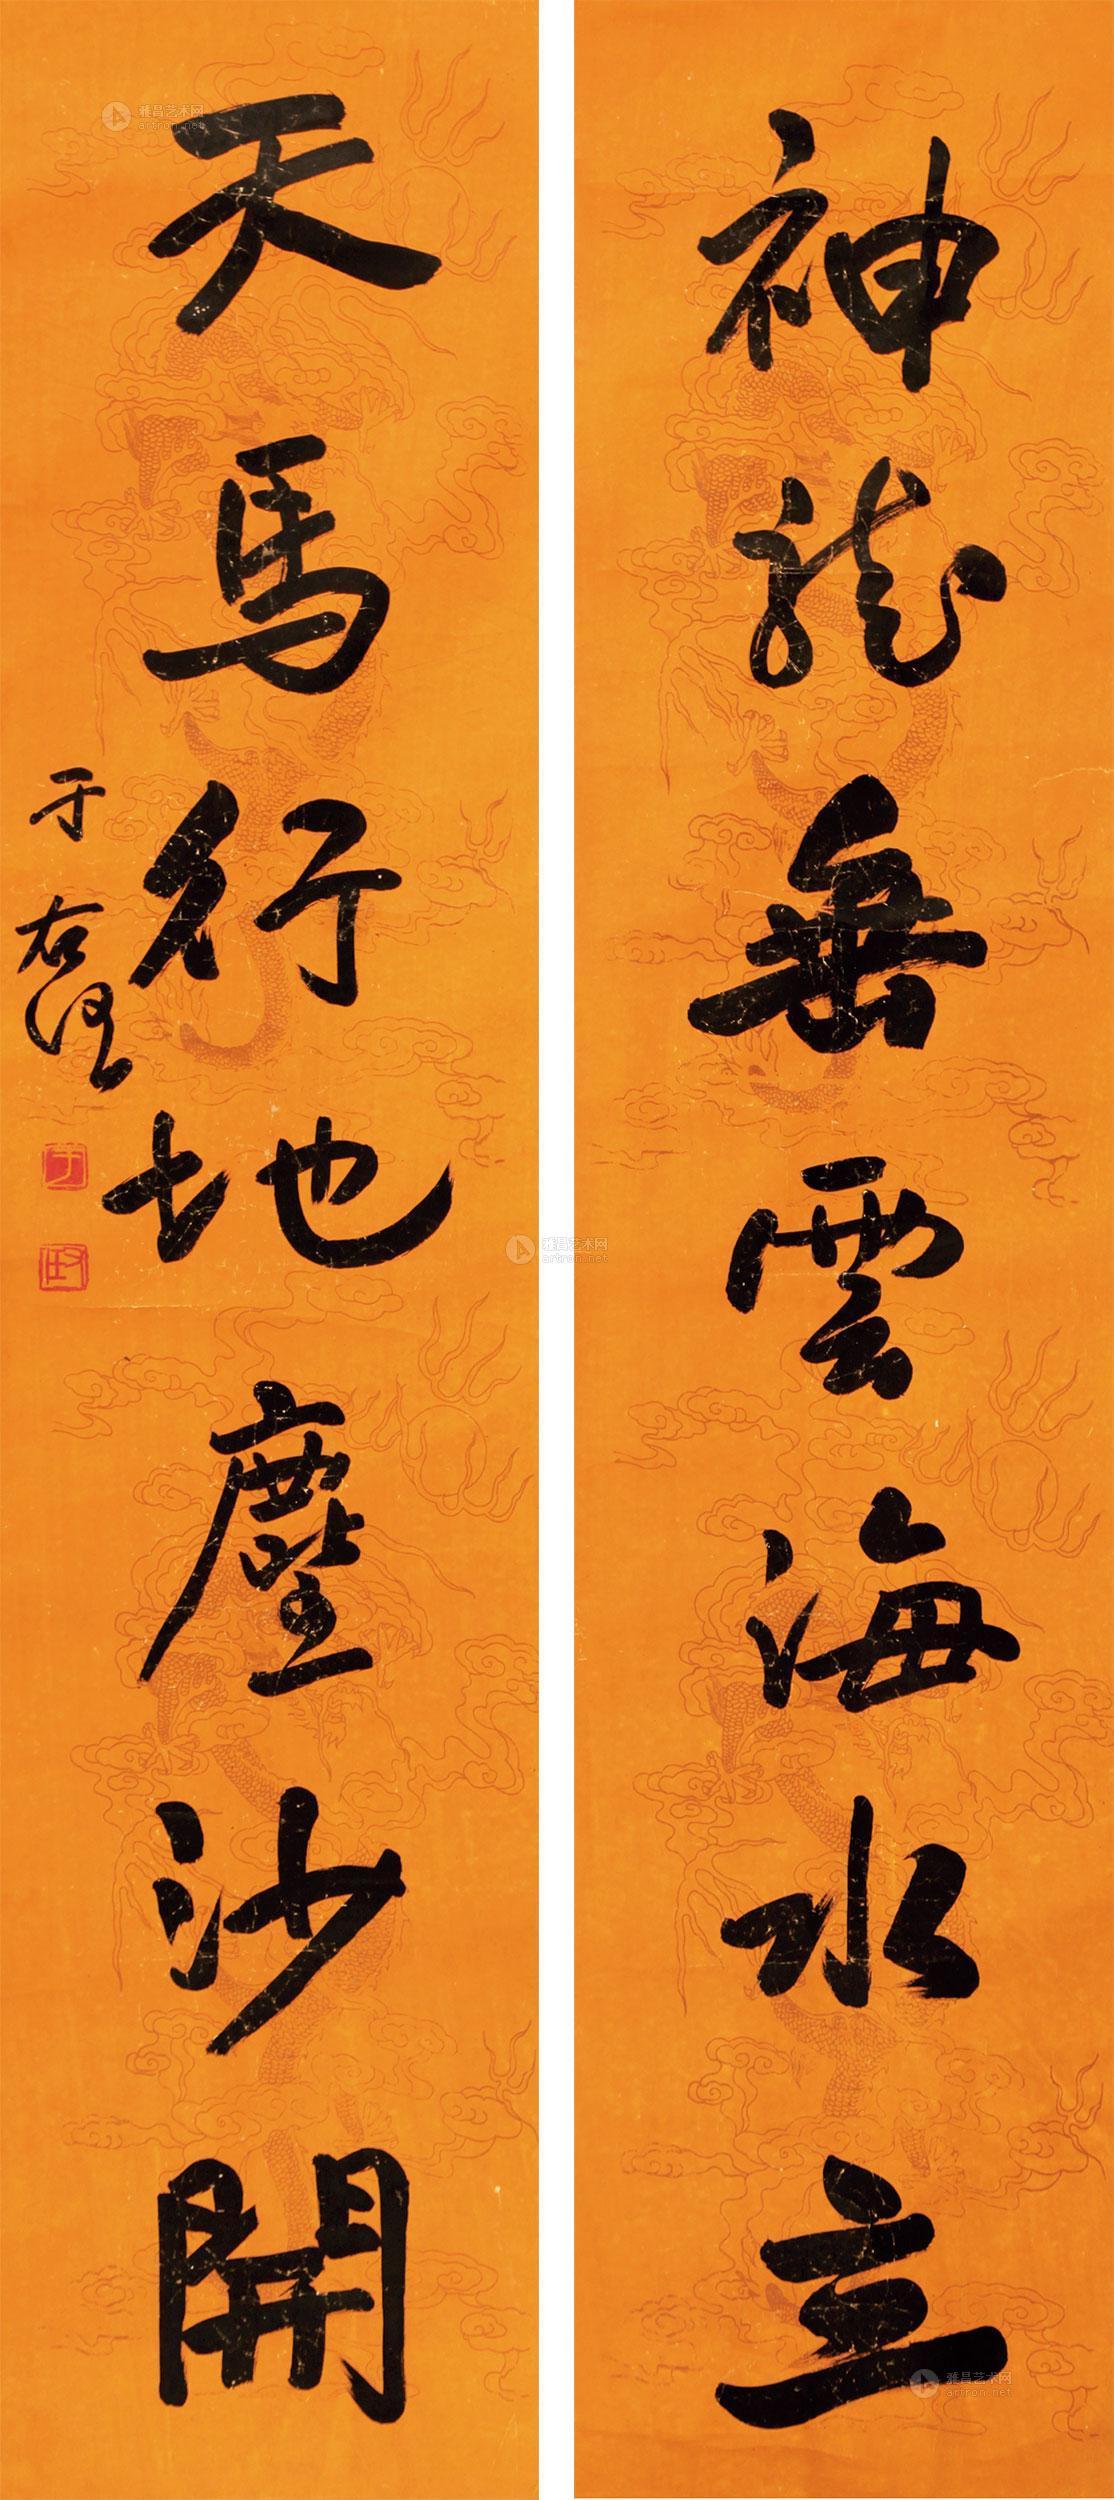 神龍垂雲海水立
天馬行地塵沙開
于右任
于
雅昌艺术网
artron.net
雅昌艺术网
artron.net
雅昌艺术网
artron.net